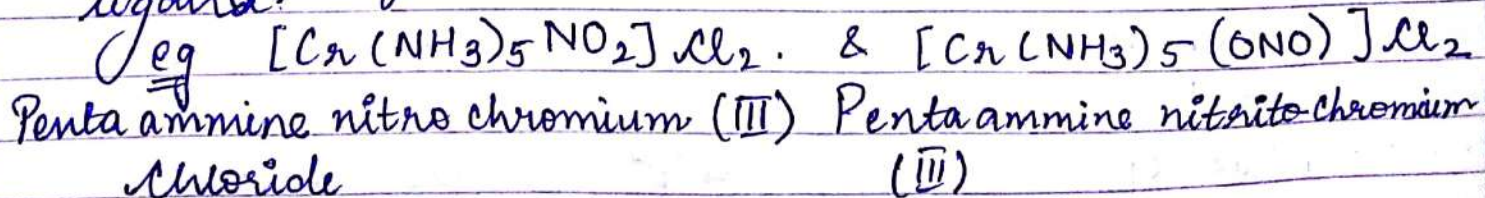 ligand.
eg [Cr(NH3)5NO2]Cl2. & [Cr(NH3)5(ONO)]Cl2
Penta ammine nitro chromium (III) Penta ammine nitrito chromium
chloride (III)